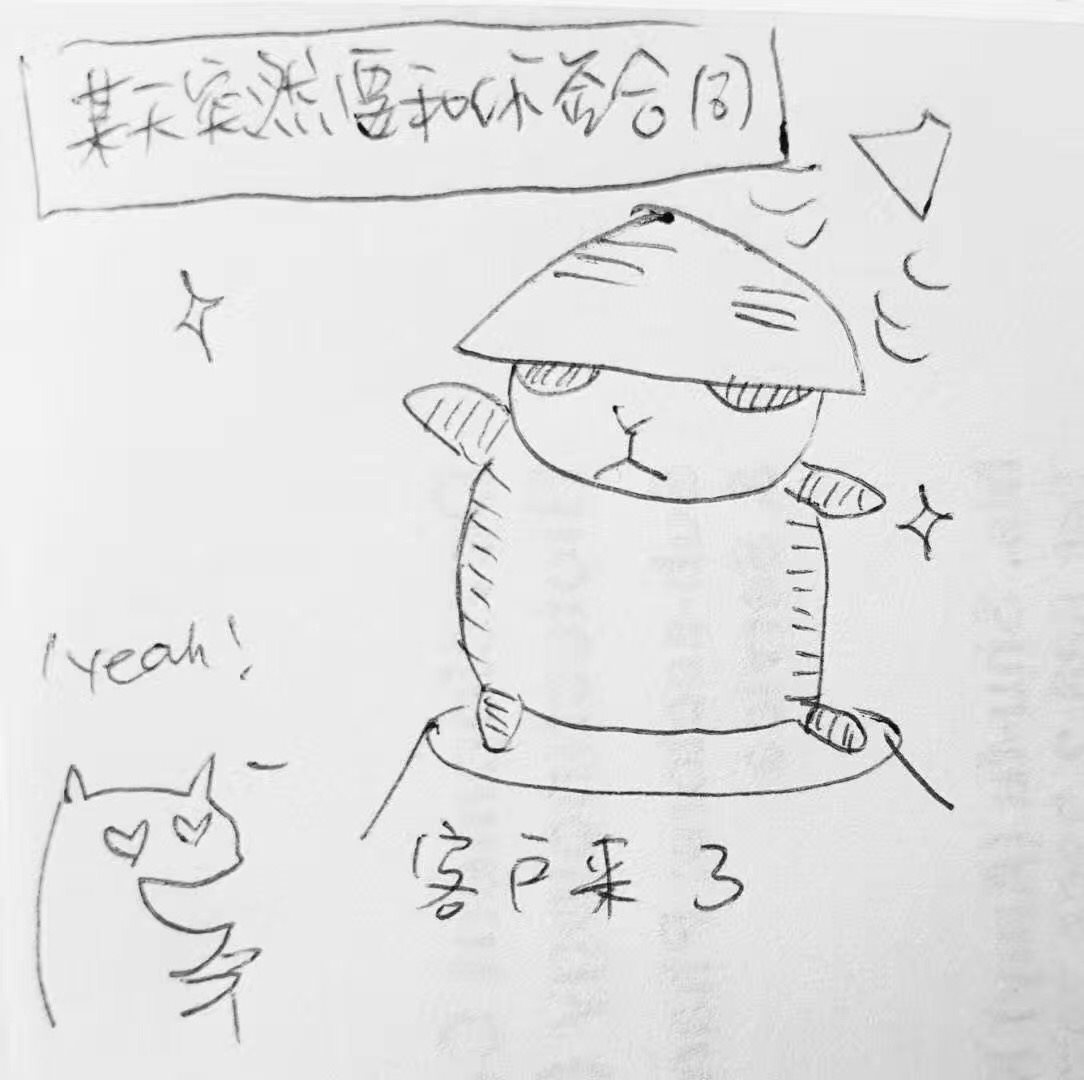 某天突然要和你签合同
yeah!
客户来了